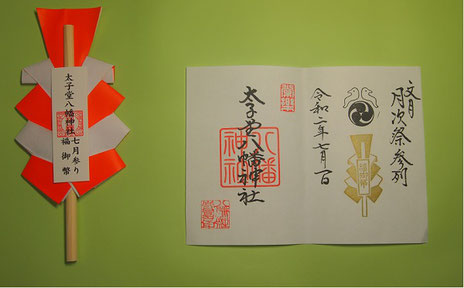 太子堂八幡神社
七月参り
福御幣
文月
月次祭参列
令和二年七月一日
太子堂八幡神社
八幡神社